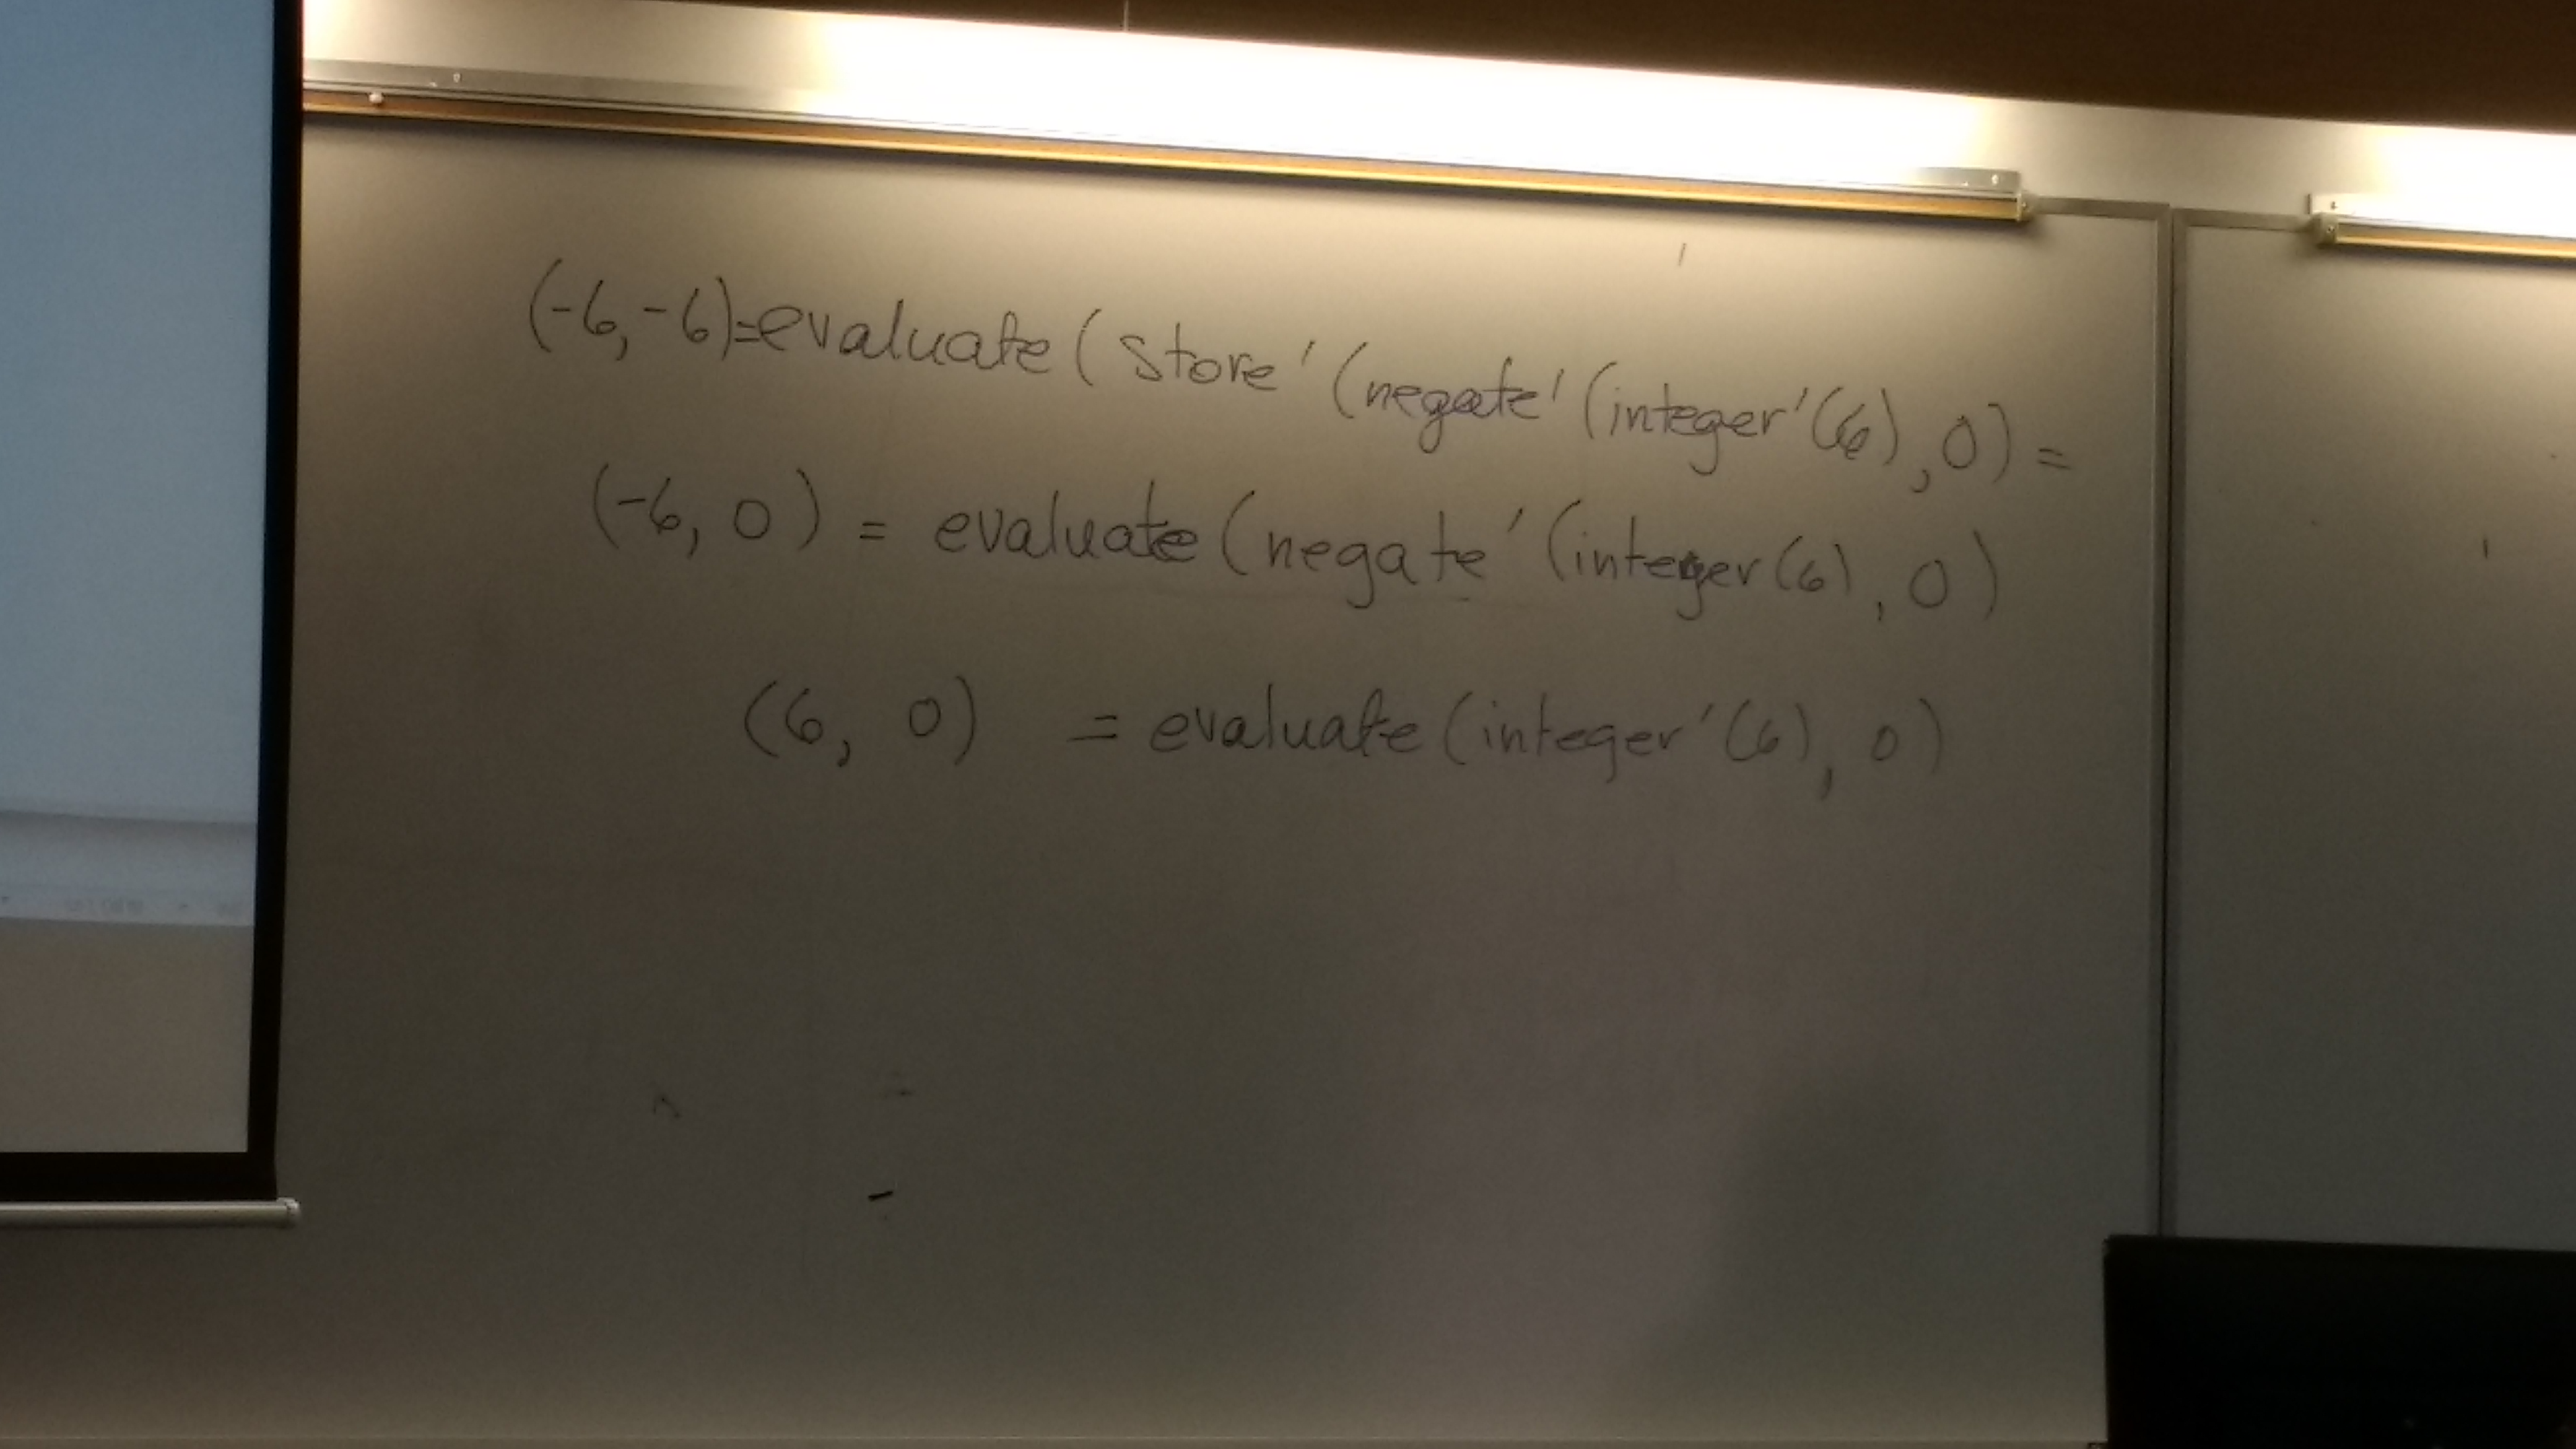 (-6,-6)=evaluate(store'(negate'(integer'(6),0)=
(-6, 0) = evaluate(negate'(integer(6), 0)
(6, 0) = evaluate(integer'(6), 0)